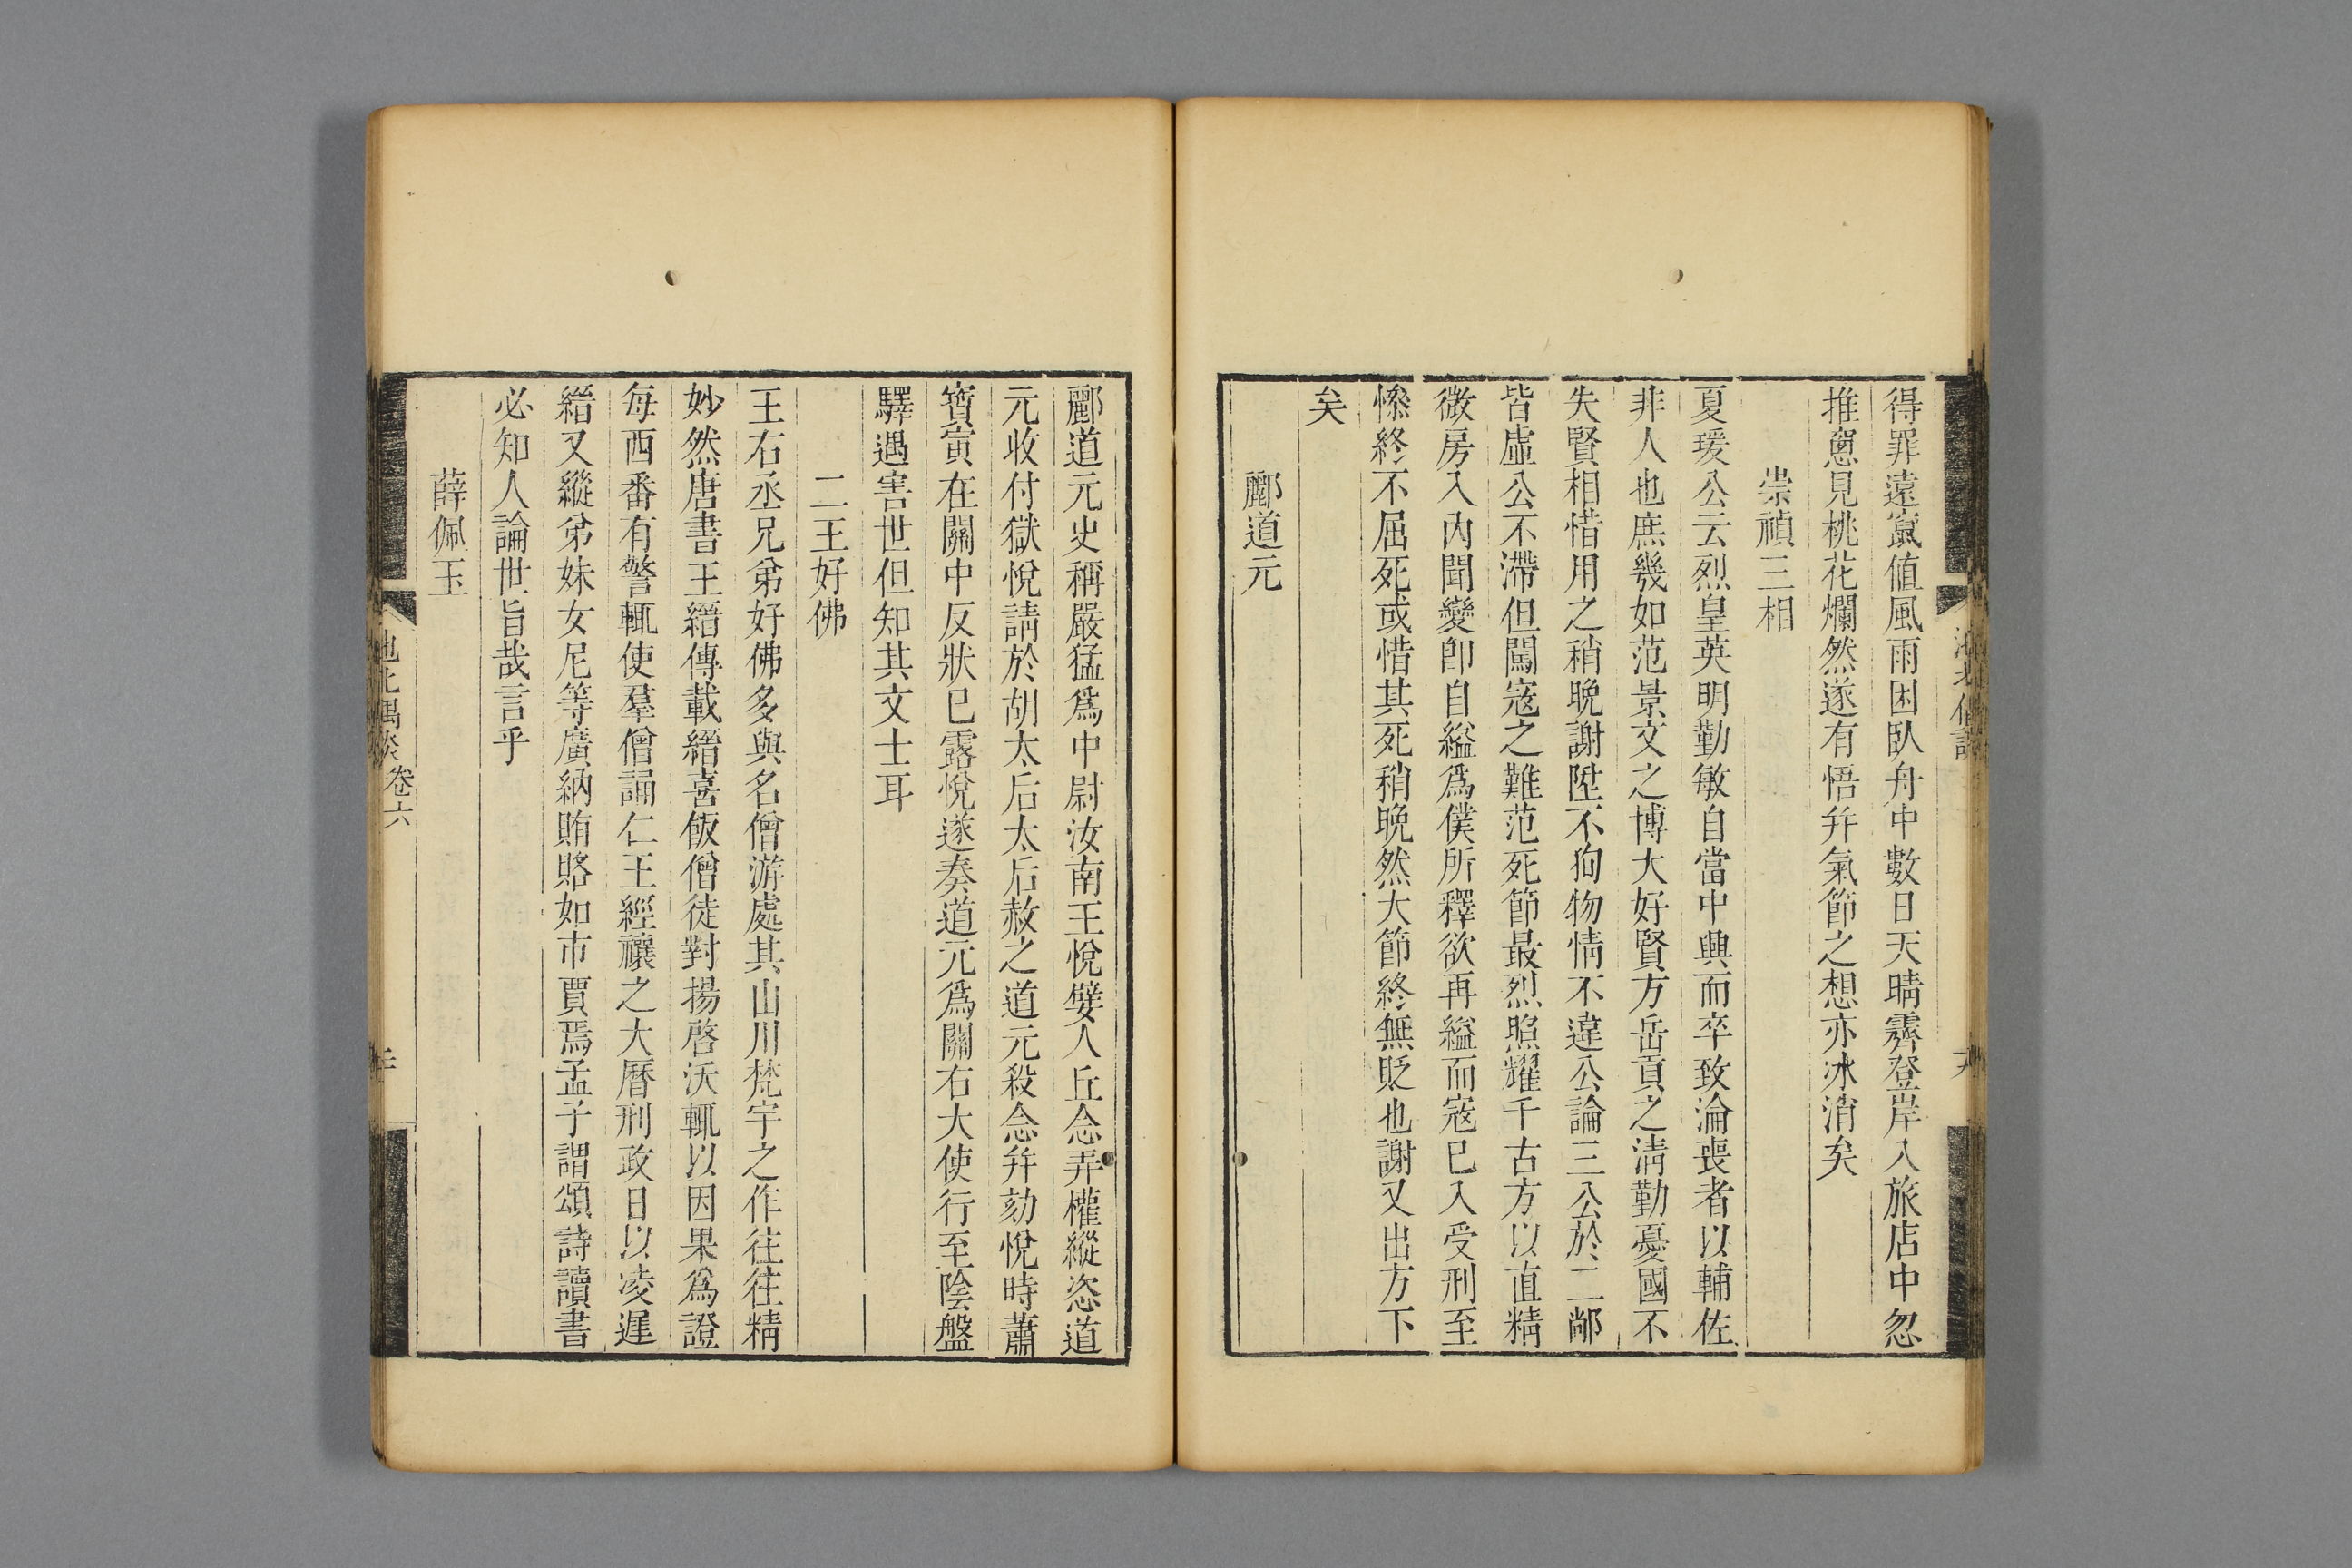 得罪遠竄値風雨困臥舟中數日天晴霽登岸入旅店中忽
推窻見桃花爛然遂有悟幷氣節之想亦冰消矣
崇禎三相
夏瑗公云烈皇英明勤敏自當中興而卒致淪喪者以輔佐
非人也庶幾如范景文之博大好賢方岳貢之淸勤憂國不
失賢相惜用之稍晚謝陞不狥物情不違公論三公於二鄗
皆虛公不滯但闖寇之難范死節最烈照耀千古方以直精
微房入內聞變卽自縊爲僕所釋欲再縊而寇已入受刑至
慘終不屈死或惜其死稍晚然大節終無貶也謝又出方下
矣
酈道元
酈道元史稱嚴猛爲中尉汝南王悅嬖人丘念弄權縱恣道
元收付獄悅請於胡太后太后赦之道元殺念幷劾悅時蕭
寳寅在關中反狀已露悅遂奏道元爲關右大使行至陰盤
驛遇害世但知其文士耳
二王好佛
王右丞兄弟好佛多與名僧游處其山川梵宇之作往往精
妙然唐書王縉傳載縉喜飯僧徒對揚啓沃輒以因果爲證
每西番有警輒使羣僧誦仁王經禳之大曆刑政日以凌遲
縉又縱弟妹女尼等廣納賄賂如市賈焉孟子謂頌詩讀書
必知人論世旨哉言乎
薛佩玉
池北偶談 卷六